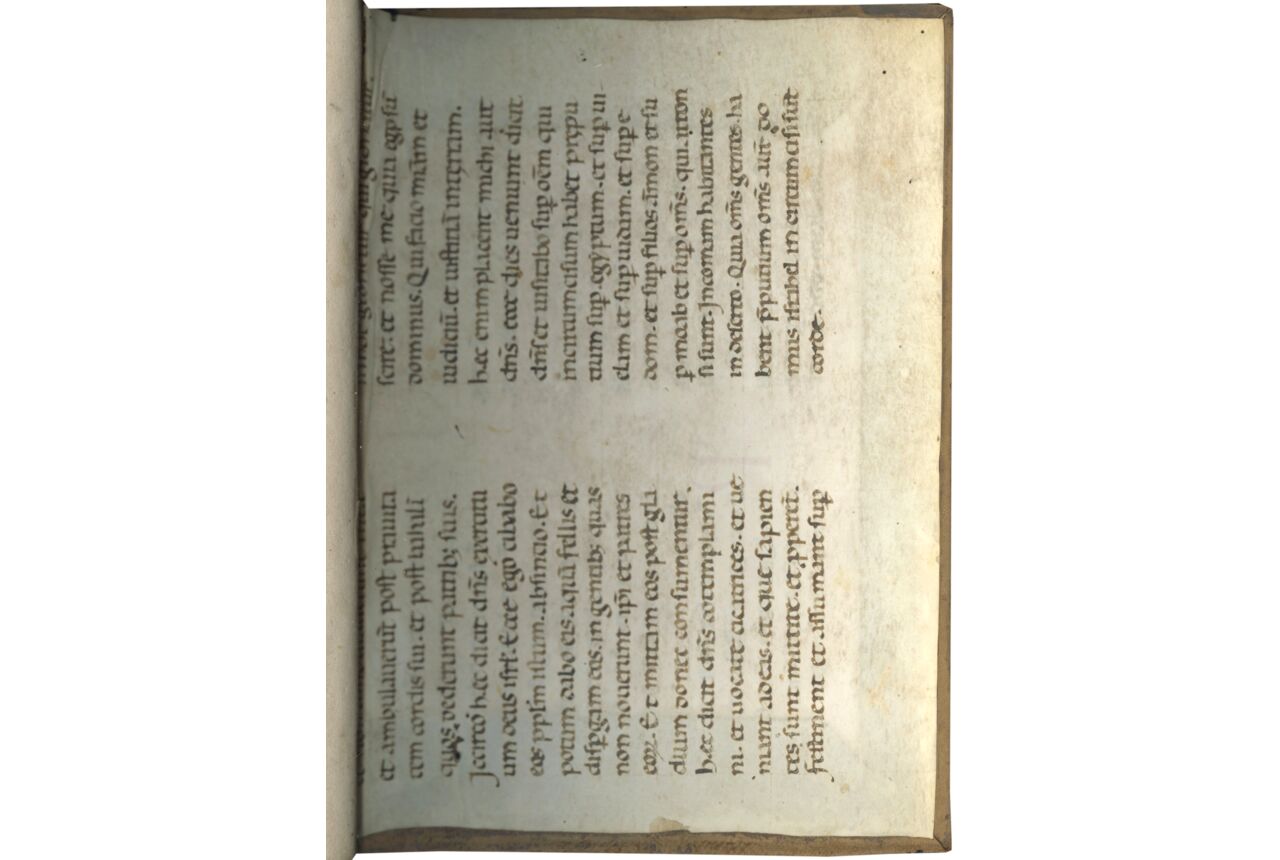 et ambulauerū post prauita
tem cordis sui. et post balī
quas. dederunt patrib; suis.
Iccirco hęc dicit dn̄s exercitu
um deus isrł. Ecce ego cibabo
eos ppłm istum. absintio. Et
potum dabo eis aquā fellis et
disp̱gam eos. in gentib; quas
non nouerunt. ip̄i et patres
eoꝝ. Et mittam eos post gla
dium donec consumentur.
hęc dicit dn̄s cōtemplami
ni. et uocate lacatrices. et ue
niant ad eas. et quę sapien
tes sunt mittite. et p̱perēt.
festinent et assumant sup̱
scire. et nosse me quia ego sū
dominus. Qui facio mīam et
iudiciū. et iustitiā in terram.
hęc enim placent michi ait
dn̄s. ecce dies ueniunt dicit
dn̄s et uisitabo sup̱ om̄em qui
incircumcisum habet prępu
tium sup̱. egyptum. et sup̱ iu
dam et sup̱ iudam. et sup̱ e
dom. et sup̱ filios. āmon et su
p̱ moab et sup̱ om̄s. qui atton
si sunt. In comam habitantes
in deserto. Quia om̄s gentes. ha
bent p̄putium om̄s. aut̄ do
mus israhel in circumcisi sūt
corde.